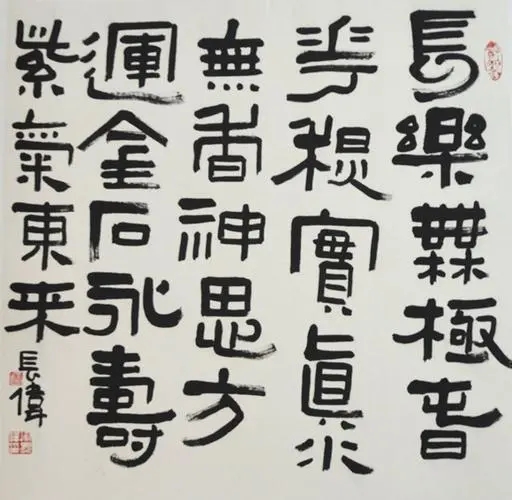 長樂無極旾
華秋實真水
無香神思方
運金石永壽
紫氣東来
長偉